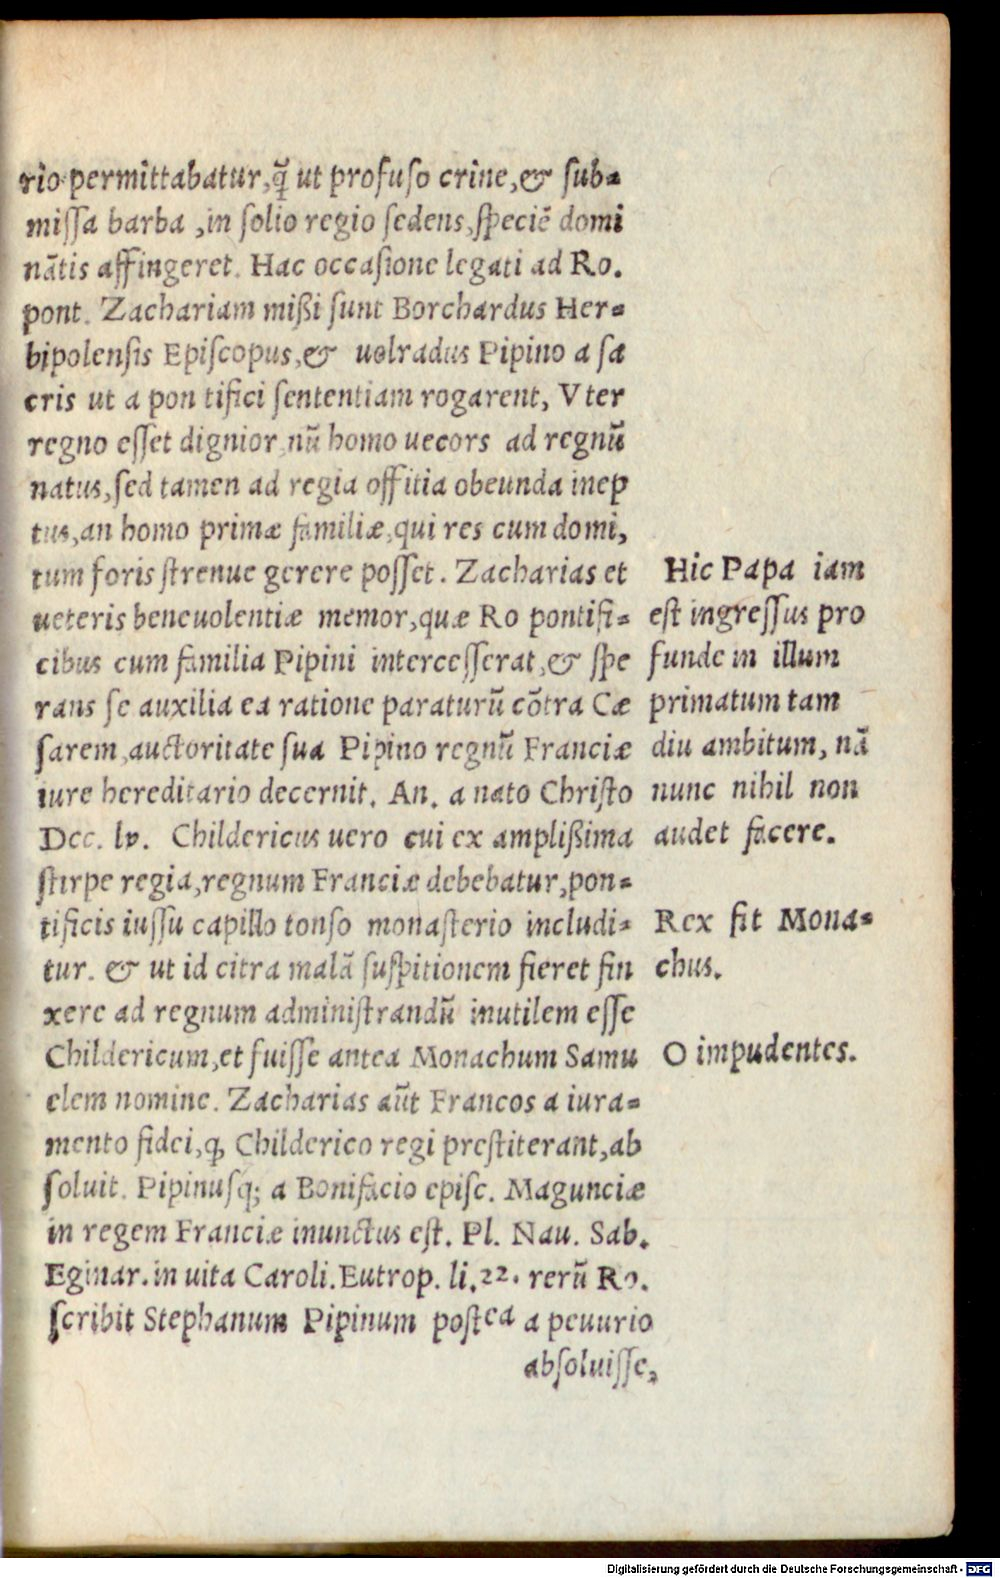 rio permittabatur, q̃ ut profuso crine, & sub-
missa barba, in solio regio sedens, speciẽ domi
nãtis affingeret. Hac occasione legati ad Ro.
pont. Zachariam mißi sunt Borchardus Her-
bipolensis Episcopus, & uolradus Pipino a sa
cris ut a pon tifici sententiam rogarent, Vter
regno esset dignior, nũ homo uecors ad regnũ
natus, sed tamen ad regia offitia obeunda inep
tus, an homo primæ familiæ, qui res cum domi,
tum foris strenue gerere posset. Zacharias et
ueteris beneuolentiæ memor, quæ Ro pontifi-
cibus cum familia Pipini intercesserat, & spe
rans se auxilia ea ratione paraturũ cõtra Cæ
sarem, auctoritate sua Pipino regnũ Franciæ
iure hereditario decernit. An. a nato Christo
Dcc. lv. Childericus uero cui ex amplißima
stirpe regia, regnum Franciæ debebatur, pon-
tificis iussu capillo tonso monasterio includi-
tur. & ut id citra malã suspitionem fieret fin
xere ad regnum administrandũ inutilem esse
Childericum, et fuisse antea Monachum Samu
elem nomine. Zacharias aũt Francos a iura-
mento fidei, q, Childerico regi prestiterant, ab
soluit. Pipinusq; a Bonifacio episc. Magunciæ
in regem Franciæ inunctus est. Pl. Nau. Sab.
Eginar. in uita Caroli. Eutrop. li. 22. rerũ Ro.
scribit Stephanum Pipinum postea a peuurio
absoluisse,
Hic Papa iam
est ingressus pro
funde in illum
primatum tam
diu ambitum, nã
nunc nihil non
audet facere.
Rex fit Mona-
chus.
O impudentes.
Digitalisierung gefördert durch die Deutsche Forschungsgemeinschaft - DFG